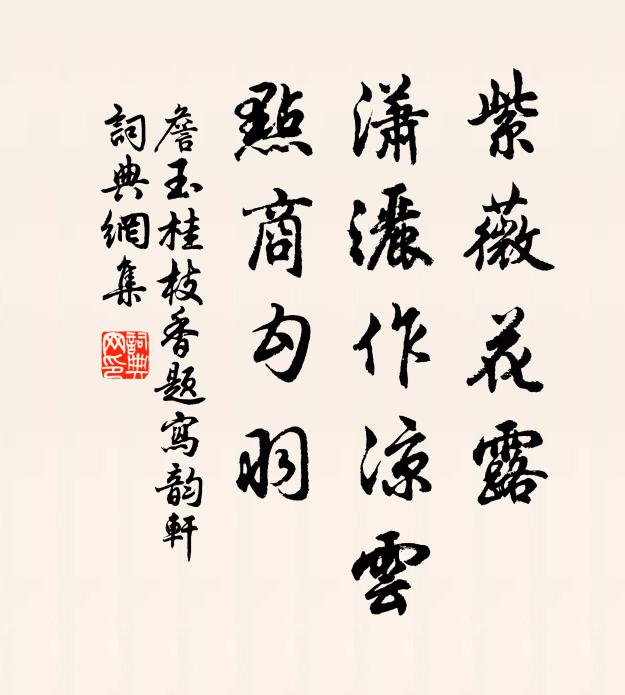 紫薇花露
瀟灑作涼雲
點商勾羽
詹玉桂枝香題寫韵軒
詞典網集
詞典
网印